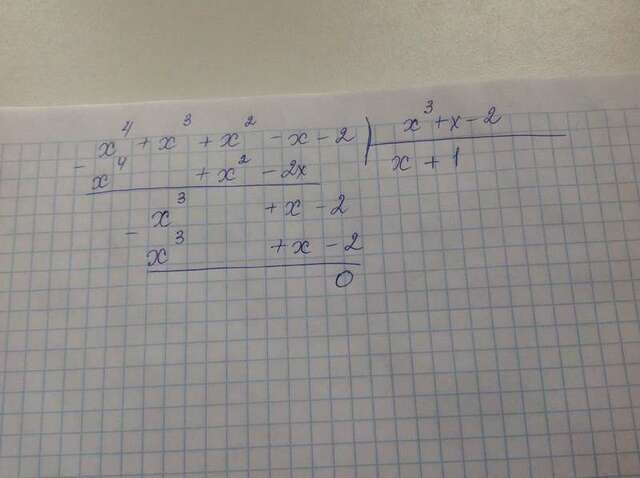 x⁴ + x³ + x² - x - 2 | x³ + x - 2
- x⁴ + x² - 2x | x + 1
x³ + x - 2
- x³ + x - 2
0